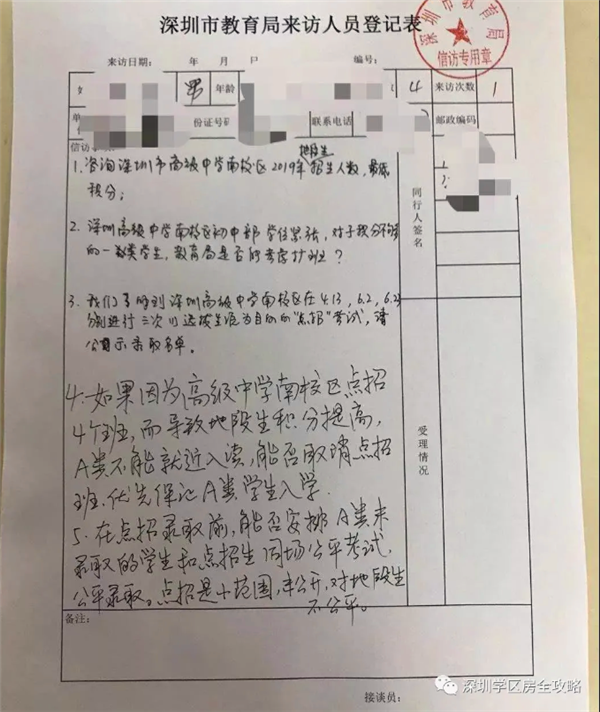 深圳市教育局来访人员登记表
深圳市教育局
信访专用章
来访日期： 年 月 日 编号：
男 年龄 4 来访次数 1
份证号码 联系电话 邮政编码
信访事项：
地段生
1.咨询深圳市高级中学南校区2019年招生人数，最低
积分；
2.深圳高级中学南校区初中部学位紧张，对于积分不够
的一类学生，教育局是否能考虑扩班？
3.我们了解到深圳高级中学南校区在4.13，6.2，6.23
分别进行三次以选拔生源为目的的"点招"考试，请
公示录取名单。
4.如果因为高级中学南校区点招
4个班，而导致地段生积分提高，
A类不能就近入读，能否取消点招
班.优先保证A类学生入学.
5.在点招录取前，能否安排A类未
录取的学生和点招生同场公平考试，
公平录取。点招是小范围，未公开，对地段生
不公平。
同行人签名
受理情况
备注：
接谈员：
深圳学区房全攻略